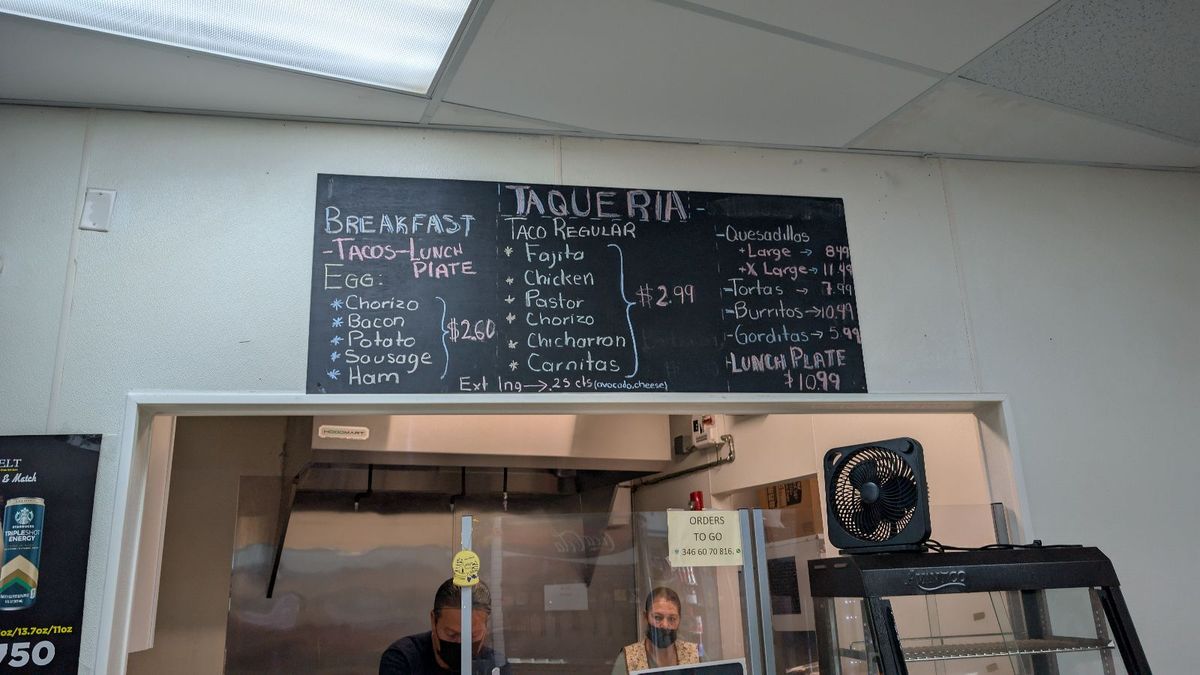 TAQUERIA
BREAKFAST
-TACOS-LUNCH
PLATE
EGG:
* Chorizo
* Bacon
* Potato
* Sausage
* Ham
$2.60
TACO REGULAR
* Fajita
* Chicken
* Pastor
* Chorizo
* Chicharron
* Carnitas
$2.99
Ext Ing → .25 cts (avocado, cheese)
-Quesadillas
+Large → 8.49
+X Large → 11.49
-Tortas → 7.99
-Burritos → 10.99
-Gorditas → 5.99
LUNCH PLATE
$10.99
HOODMART
ORDERS
TO GO
346 60 70 816.
AVANTCO
ELT
& Match
STARBUCKS
TRIPLESHOT
ENERGY
oz/13.7oz/11oz
750
Coca-Cola